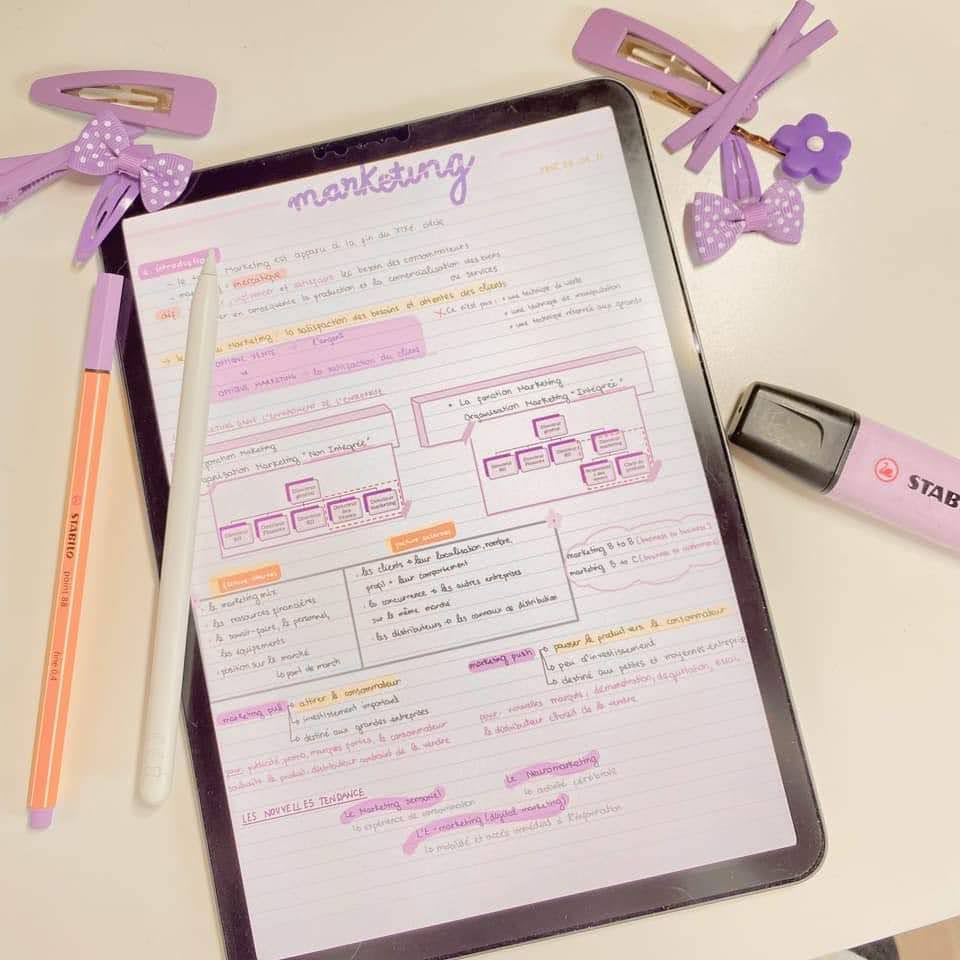 marketing
introduction
Marketing est apparu à la fin du XIXe siècle
mercatique
influencer et satisfaire les besoin des consommateurs
def
er en consequence la production et la comercialisation des biens
ou services
Marketing : la satisfaction des besoins et attentes des clients
X Ce n'est pas : + une technique de vente
+ une technique de manipulation
+ une technique réservée aux grands
OPTIQUE VENTE → l'argent
OPTIQUE MARKETING → la satisfaction du client
DANS L'ENTREPRISE
fonction Marketing
Organisation Marketing "Non Intégrée"
Directeur général
Directeur RH
Directeur Finances
Directeur
Directeur des Ventes
Directeur marketing
• La fonction Marketing
Organisation Marketing "Intégrée"
Directeur général
Directeur
Directeur Finances
Directeur
Directeur marketing
Responsable des ventes
Chefs de produits
facteurs internes
• le marketing mix
• les ressources financières
• le savoir-faire, le personnel,
les équipements
• position sur le marché
↳ part de march
facteurs externes
• les clients → leur localisation, nombre,
profil + leur comportement
• la concurrence → les autres entreprises
sur le même marché
• les distributeurs → les cannaux de distribution
marketing B to B (business to business)
marketing B to C (business to consumers)
marketing pull
→ attirer le consommateur
→ investissement important
→ destiné aux grandes entreprises
pour publicité promo, marques fortes, le consommateur
souhaite le produit, distributeur contraint de le vendre
marketing push
→ pousser le produit vers le consommateur
→ peu d'investissement
→ destiné aux petites et moyennes entreprise
pour nouvelles marques, démonstration, dégustation, essai
le distributeur choisit de le vendre
LES NOUVELLES TENDANCE
Le Marketing sensoriel
↳ expérience de consommation
Le Neuromarketing
↳ activité cérébrale
L'E-marketing (digital marketing)
↳ mobilité et accès immédiat à l'information
STABILO point 88 fine 0.4
STAB